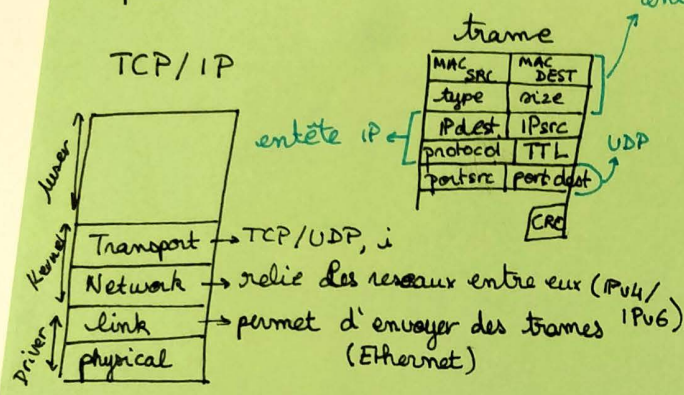 TCP/IP
luser
Kernel
Driver
Transport → TCP/UDP, i
Network → relie des reseaux entre eux (IPv4/
IPv6)
link → permet d'envoyer des trames
(EThernet)
physical
trame
MAC SRC MAC DEST
type size
entête IP
IPdest IPsrc
protocol TTL
UDP
portsrc port dest
CRC